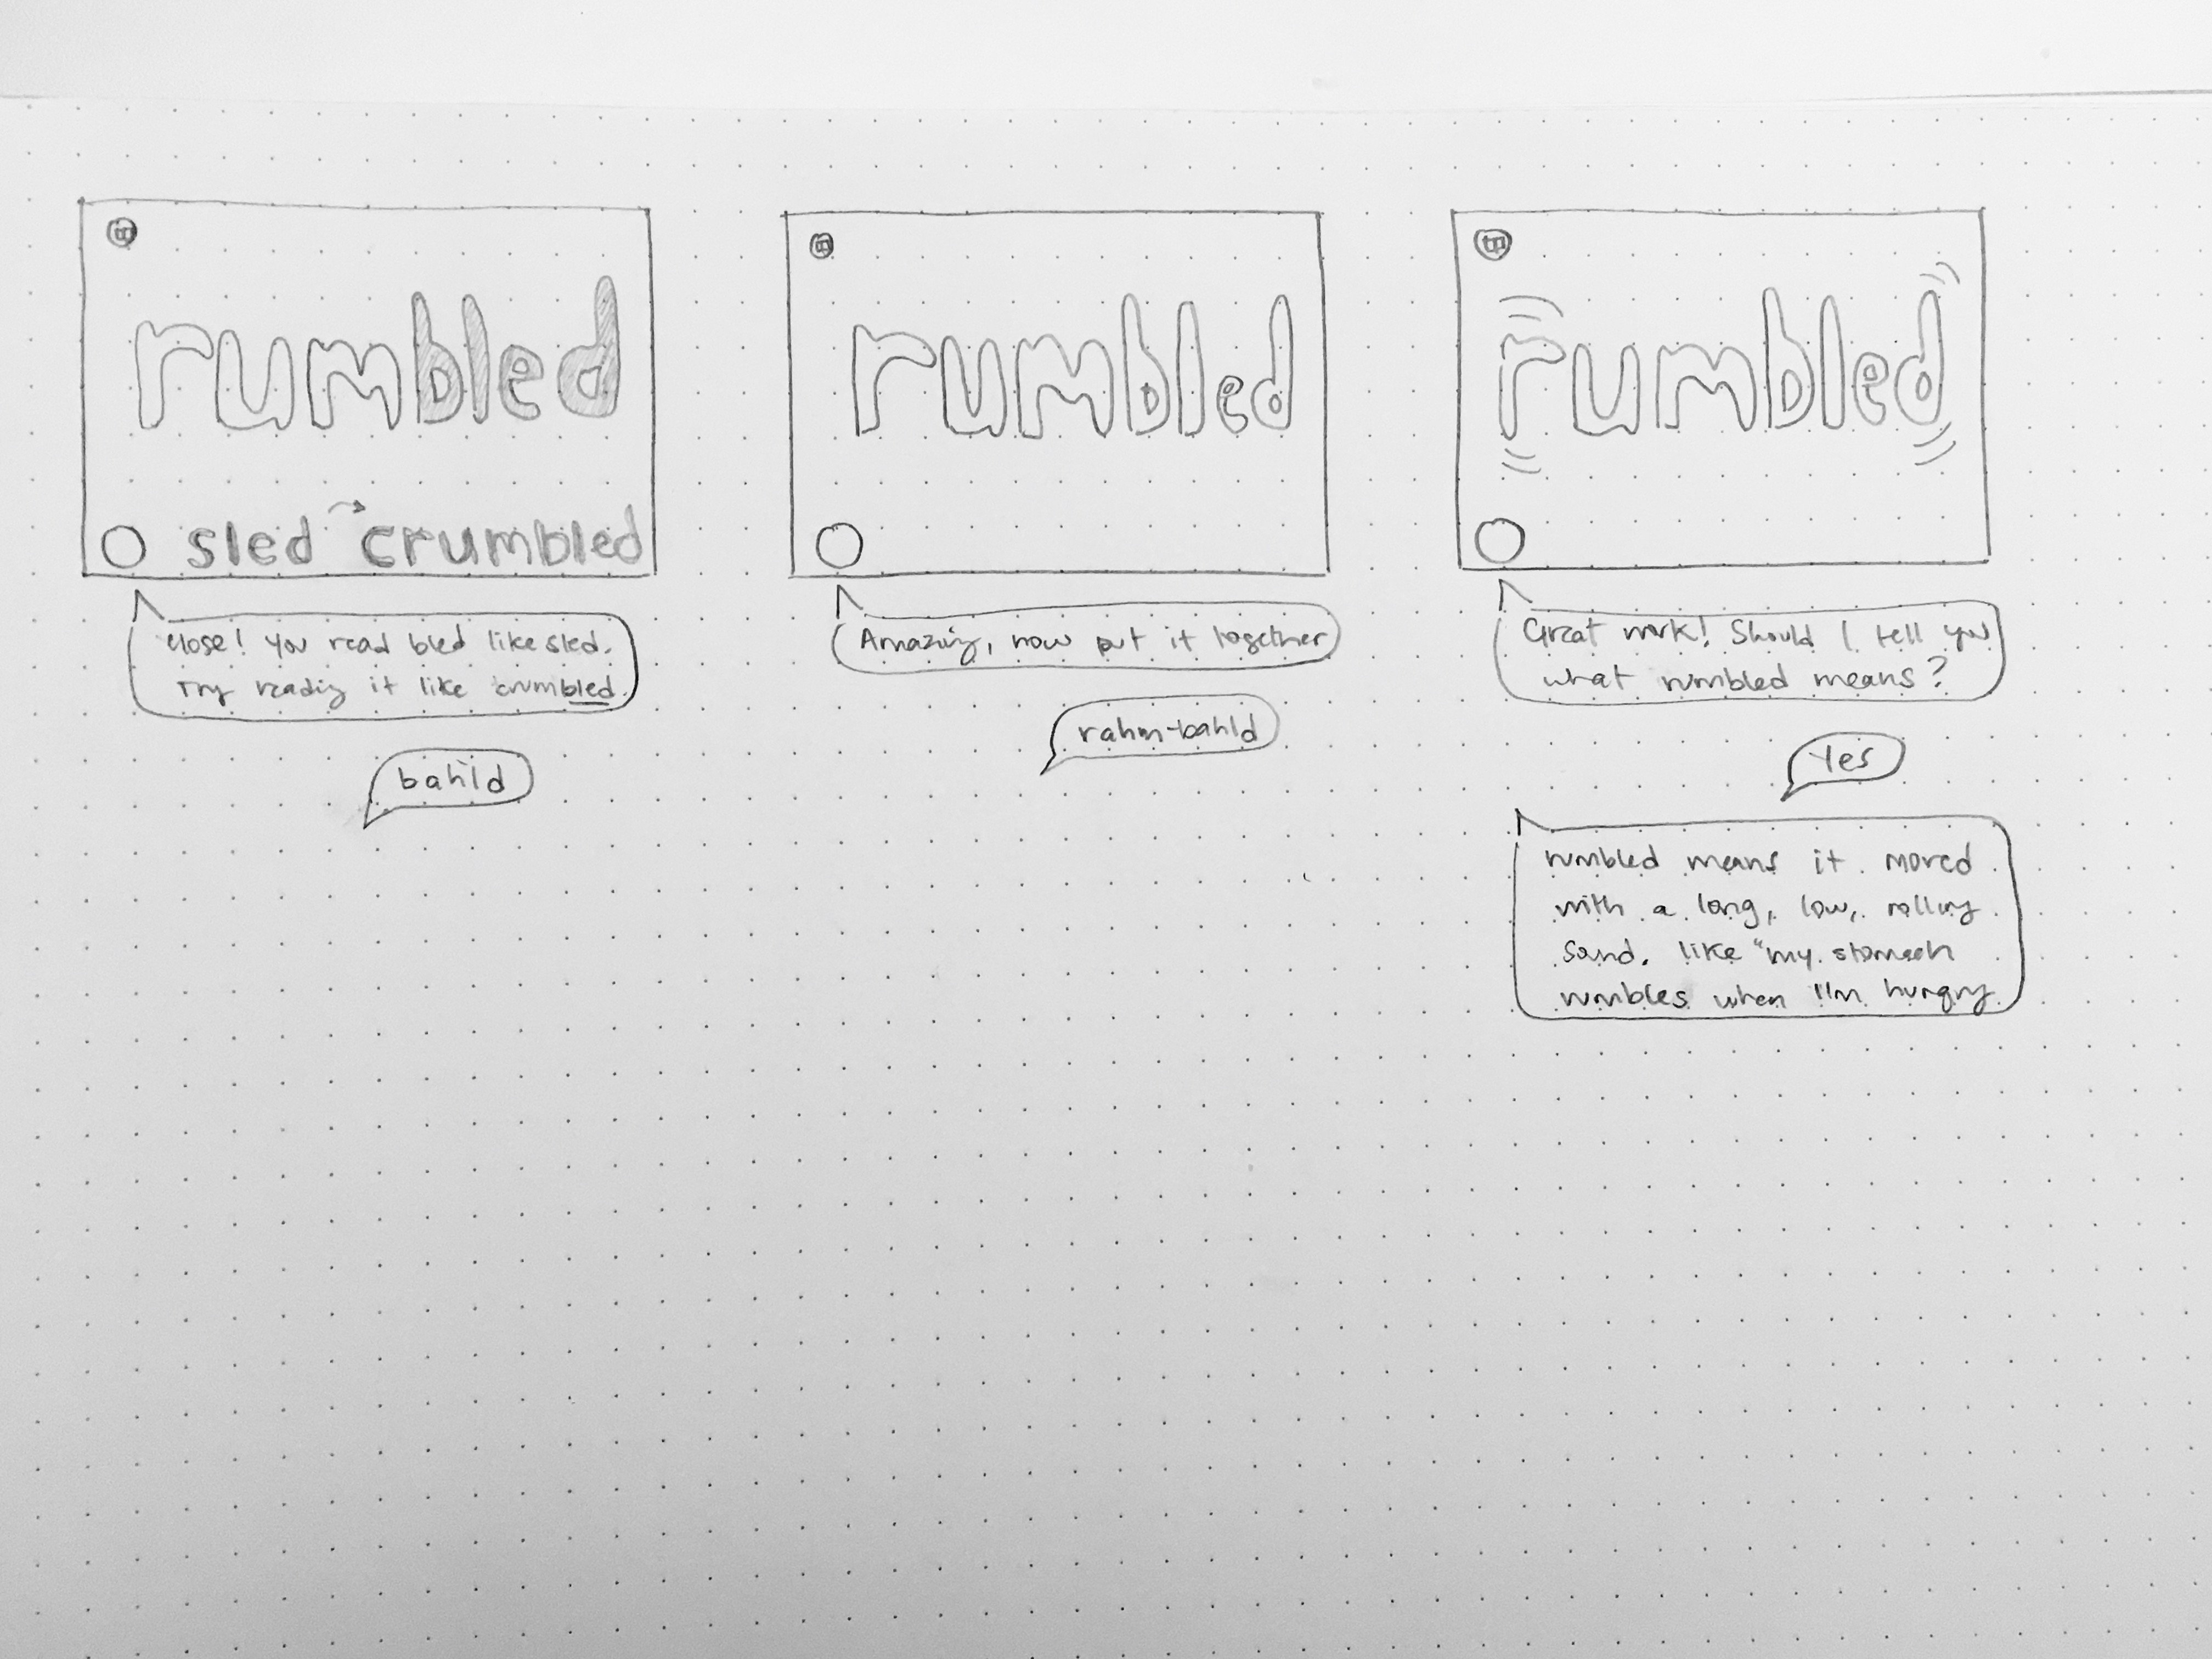 rumbled
sled crumbled
close! You read bled like sled.
Try reading it like crumbled.
bahld
rumbled
Amazing, now put it together
rahm-bahld
rumbled
Great work! Should I tell you
what rumbled means?
Yes
rumbled means it moved
with a long, low, rolling
sound. like "my stomach
rumbles when I'm hungry